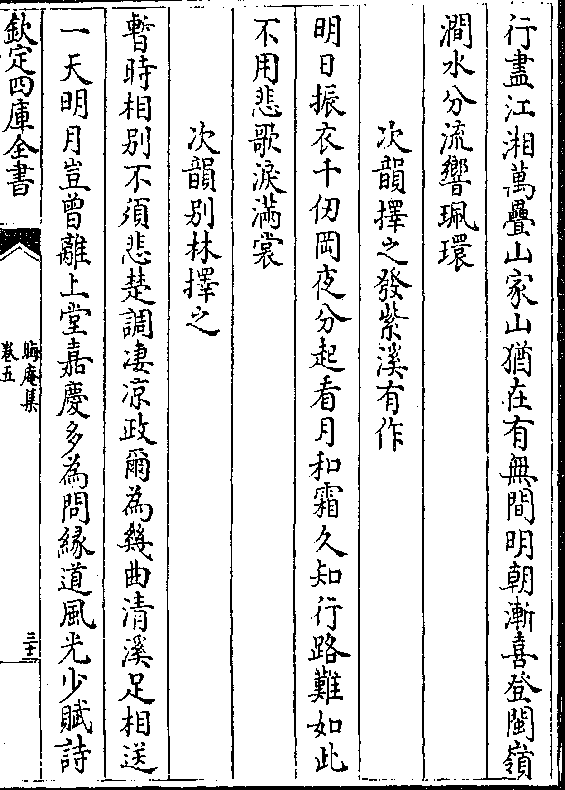 行盡江湘萬疊山家山猶在有無間明朝漸喜登閩嶺
澗水分流響珮環
次韻擇之發紫溪有作
明日振衣千仞岡夜分起看月和霜久知行路難如此
不用悲歌淚滿裳
次韻别林擇之
暫時相别不須悲楚調凄凉政爾為幾曲清溪足相送
一天明月豈曾離上堂嘉慶多為問縁道風光少賦詩
欽定四庫全書
晦庵集
卷五
三十一